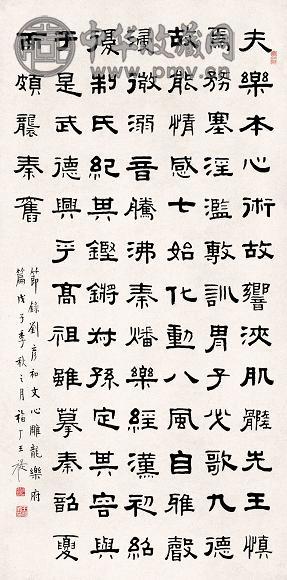 夫樂本心術故響浹肌髓先王慎
焉務塞淫濫敷訓冑子必歌九德
故能情感七始化動八風自雅聲
浸微溺音騰沸秦燔樂經漢初紹
復制氏紀其鏗鏘叔孫定其容與
于是武德興乎高祖雖摹秦韶夏
而頗襲秦舊
節錄劉彥和文心雕龍樂府
篇戊子季秋之月福丁王禔
中华收藏网